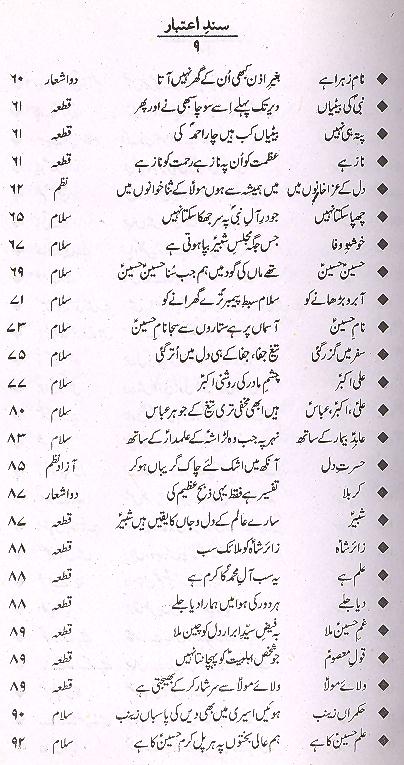 سندِ اعتبار
۹
◆ نامِ زہرا ہے بغیر اذن کبھی اُن کے گھر نہیں آتا دو اشعار ۶۰
◆ نبی کی بیٹیاں دیر تک پہلے اِسے سوچا سبھی نے اور پھر قطعہ ۶۱
◆ پتہ ہی نہیں بیٹیاں کب ہیں چار احمدؐ کی قطعہ ۶۱
◆ ناز ہے عظمت کو اُن پہ ناز ہے رحمت کو ناز ہے قطعہ ۶۱
◆ دل کے عزاخانوں میں میں ہمیشہ سے ہوں مولاؑ کے ثنا خوانوں میں نظم ۶۲
◆ چھپا سکتا نہیں جو درِ آلِ نبیؐ پہ سر جھکا سکتا نہیں سلام ۶۵
◆ خوشبوِ وفا جس جگہ مجلسِ شبیرؑ بپا ہوتی ہے سلام ۶۷
◆ حسینؑ حسینؑ تھے ماں کی گود میں ہم جب سُنا حسینؑ حسینؑ سلام ۶۹
◆ آبرو بڑھانے کو سلام سبطِ پیمبرؐ ترے گھرانے کو سلام ۷۱
◆ نامِ حسینؑ آسماں پر ہے ستاروں سے سجا نامِ حسینؑ سلام ۷۳
◆ سفر میں گزر گئی تیغِ جفا، جفا کے ہی دل میں اُتر گئی سلام ۷۵
◆ علی اکبرؑ چشمِ مادر کی روشنی اکبرؑ سلام ۷۷
◆ علیؑ، اکبرؑ، عباسؑ ہیں ابھی مخفی تری تیغ کے جوہر عباسؑ سلام ۸۰
◆ عابدِؑ بیمار کے ساتھ نہر پہ جب وہ لڑا شہؑ کے علمدارؑ کے ساتھ سلام ۸۳
◆ حسرتِ دل آنکھ میں اشک لئے چاک گریباں ہو کر آزاد نظم ۸۵
◆ کربلا تفسیر ہے فقط یہی ذبحِ عظیم کی دو اشعار ۸۷
◆ شبیرؑ سارے عالم کے دل و جاں کا یقیں ہیں شبیرؑ قطعہ ۸۷
◆ زائرِ شاہؑ زائرِ شاہؑ کو ملائک سب قطعہ ۸۸
◆ علم ہے یہ سب آلِ محمدؐ کا کرم ہے قطعہ ۸۸
◆ دیا جلے ہر دور کی ہوا میں ہمارا دیا جلے قطعہ ۸۸
◆ غمِ حسینؑ ملا بہ فیضِ سیّدِ ابرار دل کو چین ملا قطعہ ۸۹
◆ قولِ معصومؑ جو شخص اہلبیتؑ کو پہچانتا نہیں قطعہ ۸۹
◆ ولائے مولاؑ ولائے مولاؑ سے سرشار کر کے بھیجتی ہے قطعہ ۸۹
◆ حکمراں زینبؑ ہوئیں اسیری میں بھی دیں کی پاسباں زینبؑ سلام ۹۰
◆ علم حسینؑ کا ہے ہم عالی بختوں پہ ہر پل کرم حسینؑ کا ہے سلام ۹۲